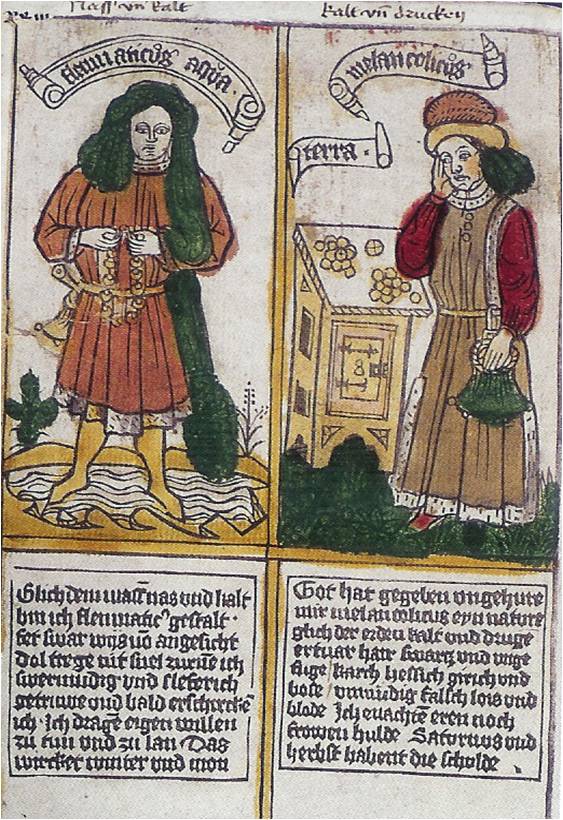 Nass vn kalt
kalt vn drucken
flecmaticus aqua.
melancolicus
terra.
Glich dem wasser nas vnd kalt
bin ich flecmatic9 gestalt.
fet swar wijs vo angesicht
dol trege nit fuel zurne ich
swermudig vnd slefferich
getruwe vnd bald erschrecken
ich. Ich drage eigen willen
zu tun vnd zu lan Das
wircket winter vnd mon
Got hat gegeben vngehure
mir melancolicus eyn nature
glich der erden kalt vnd druge
ertuar hare swartz vnd vnge
fuge karch hessich girich vnd
bose vnmudig falsch lois vnd
blode Ich enachte eren noch
frowen hulde Saturnus vnd
herbst habent die schulde